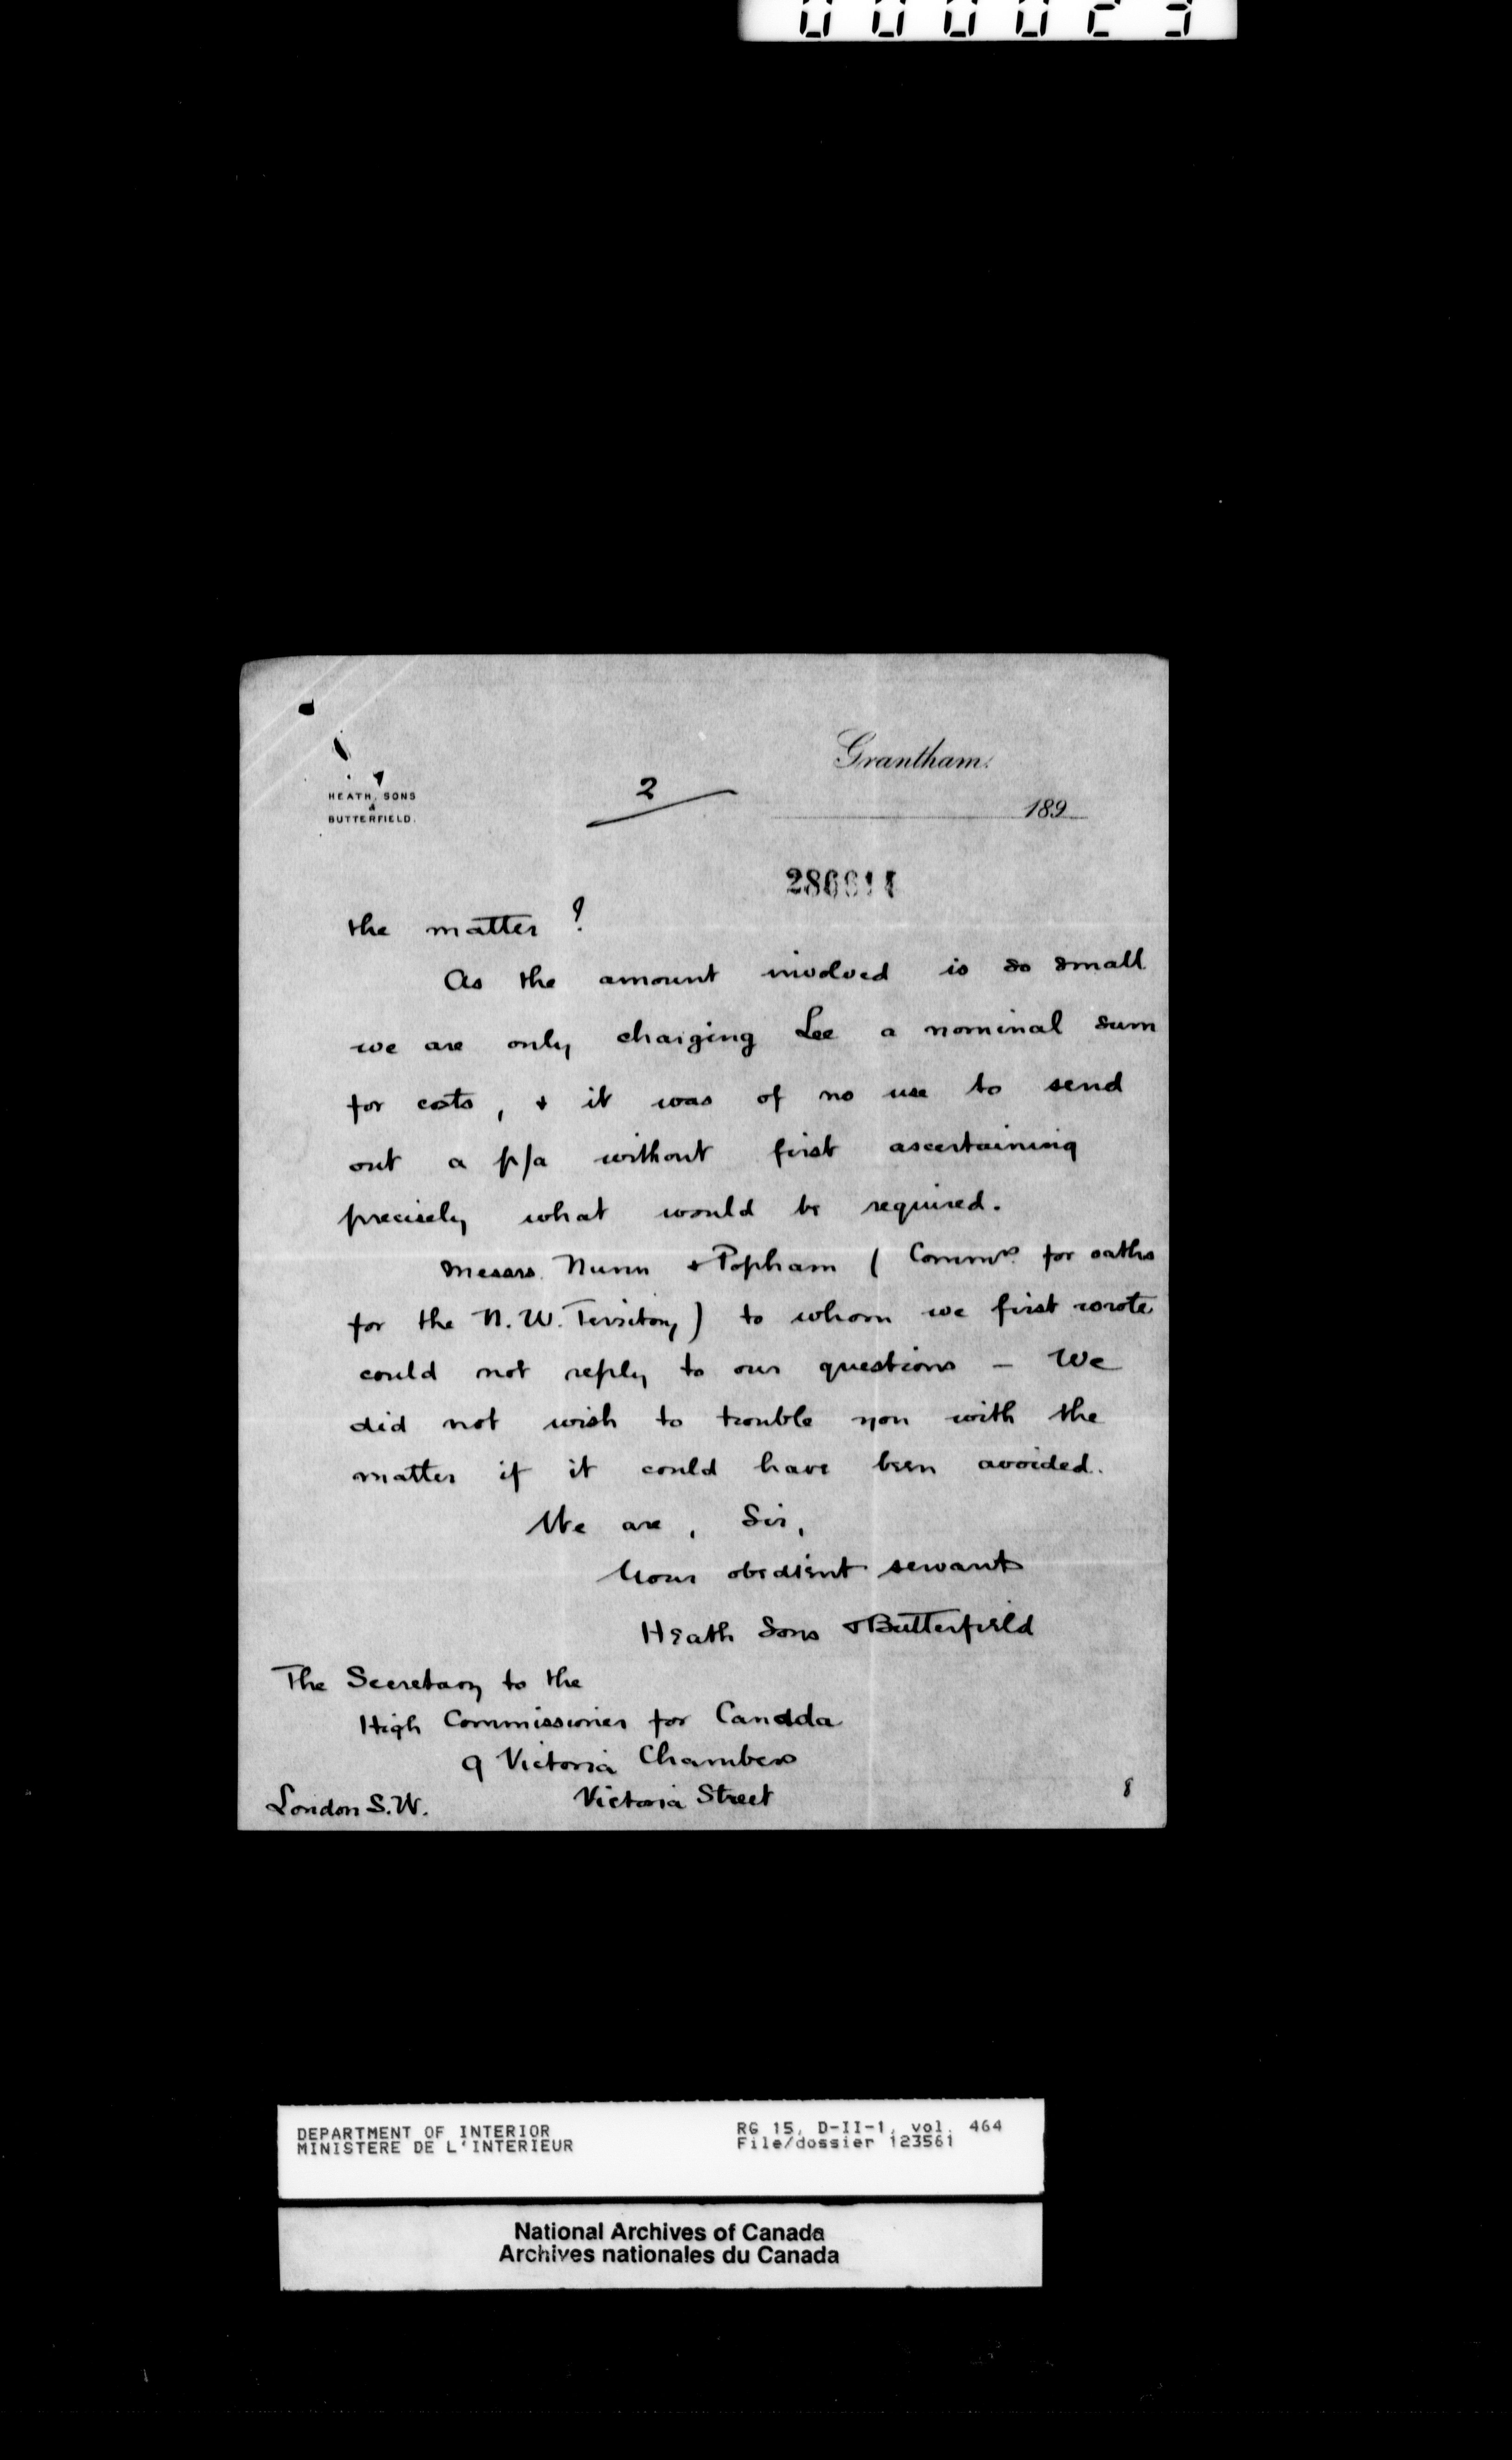 000023
Grantham.
HEATH, SONS
&
BUTTERFIELD.
2
189
the matter?
As the amount involved is so small
we are only charging Lee a nominal sum
for costs, & it was of no use to send
out a p/a without first ascertaining
precisely what would be required.
Messrs. Nunn & Popham ( Commrs. for oaths
for the N. W. Territory) to whom we first wrote
could not reply to our questions – We
did not wish to trouble you with the
matter if it could have been avoided.
We are, Sir,
Your obedient servants
Heath Sons & Butterfield
The Secretary to the
High Commissioner for Canada
9 Victoria Chambers
Victoria Street
London S.W.
8
DEPARTMENT OF INTERIOR RG 15, D-II-1, vol. 464
MINISTERE DE L'INTERIEUR File/dossier 123561
National Archives of Canada
Archives nationales du Canada